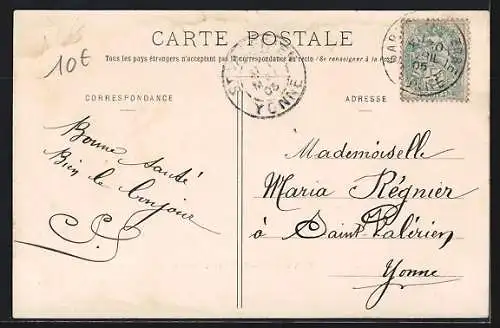 10€
CARTE POSTALE
Tous les pays étrangers n'acceptent pas la correspondance au recto (Se renseigner à la Poste)
CORRESPONDANCE
ADRESSE
YONNE
05
Bonne santé
Bien le bonjour
Mademoiselle
Maria Régnier
à Saint-Valérien
Yonne